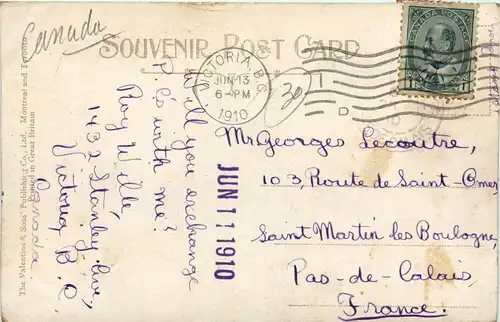 Canada
SOUVENIR POST CARD
VICTORIA, B.C.
JUN 13
6-PM
1910
CANADA POSTAGE
1 1
30
D
Will you exchange
P. Cs with me?
Roy Wille,
1432 Stanley Ave,
Victoria, B.C,
Canada
JUN 11 1910
Mr Georges Lecoutre,
103, Route de Saint-Omer
Saint Martin les Boulogne,
Pas-de-Calais,
France.
The Valentine & Sons' Publishing Co., Ltd., Montreal and Toronto
Printed in Great Britain